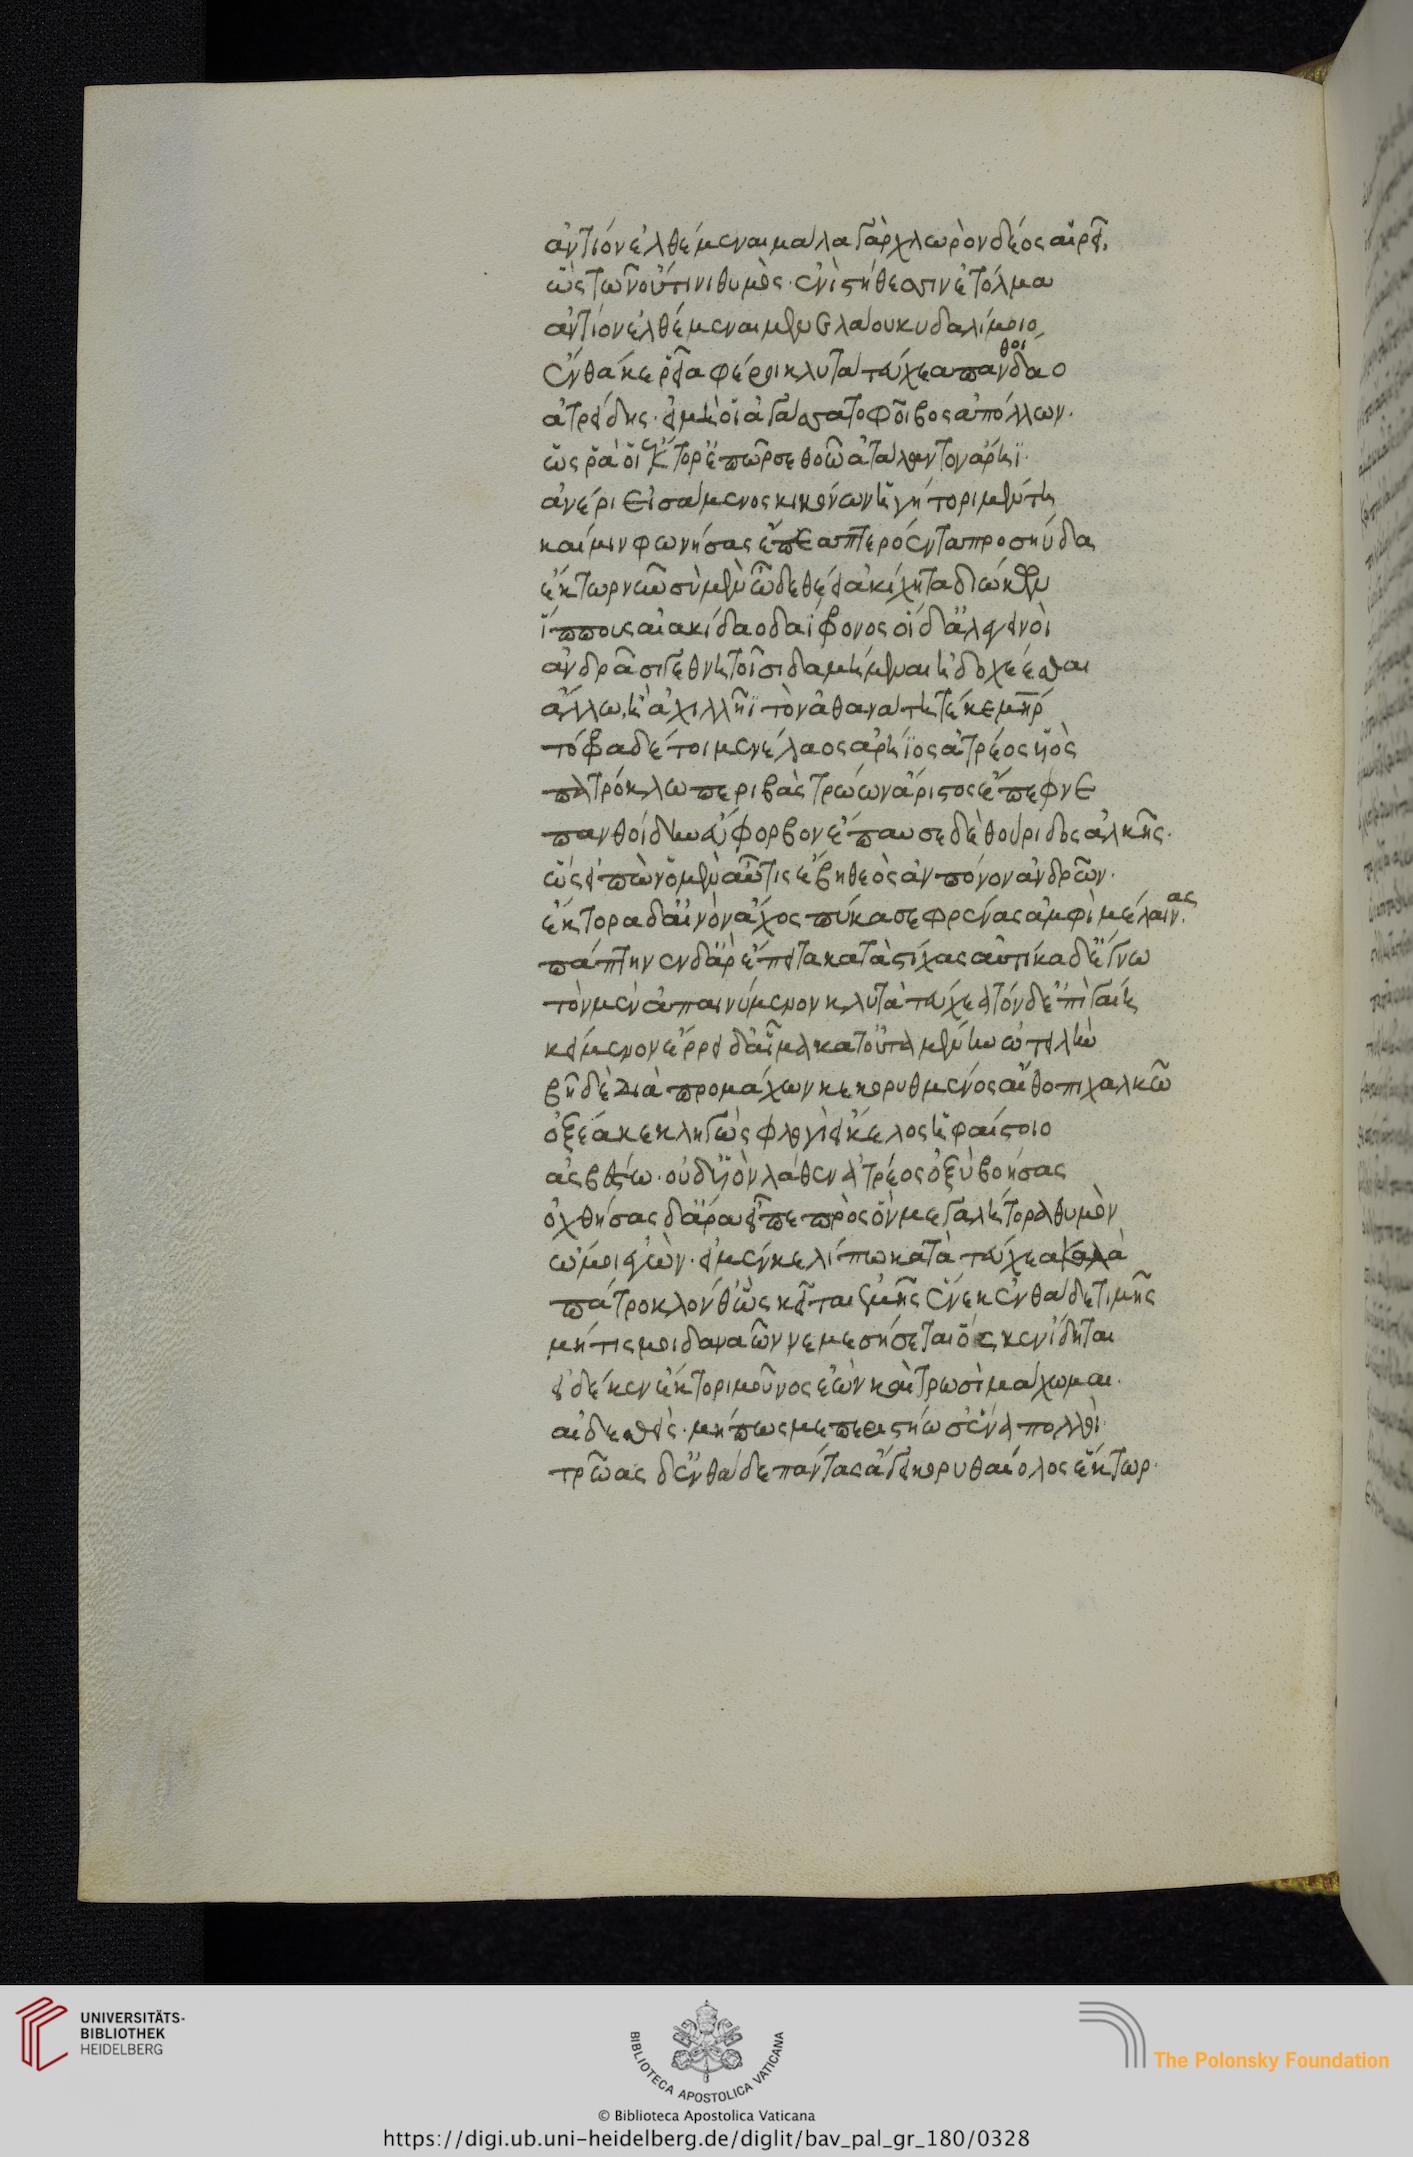 ἀντίον ἐλθέμεναι μάλα γὰρ χλωρὸν δέος αἱρεῖ.
ὣς τῶν οὔτινι θυμὸς· ἐνὶ στήθεσσιν ἐτόλμα
ἀντίον ἐλθέμεναι μενελάου κυδαλίμοιο
ἔνθά κε ῥεῖα φέροι κλυτὰ τεύχεα πανθοίδαο
ἀτρείδης· εἰ μή οἱ ἀγάσσατο φοῖβος ἀπόλλων·
ὅς ῥά οἱ ἕκτορ' ἐπῶρσε θοῶ ἀτάλαντον ἄρηϊ·
ἀνέρι εἰσάμενος κικόνων ἡγήτορι μέντη
καί μιν φωνήσας ἔπεα πτερόεντα προσηύδα
ἕκτωρ νῦν σὺ μὲν ὧδε θέεις ἀκίχητα διώκων
ἵππους αἰακίδαο δαΐφρονος οἱ δ' ἀλεγεινοὶ
ἀνδράσί γε θνητοῖσι δαμήμεναι ἠδ' ὀχέεσθαι
ἄλλω, ἢ ἀχιλλῆϊ τὸν ἀθανάτη τέκε μήτηρ
τόφρα δέ τοι μενέλαος ἀρήϊος ἀτρέος υἱὸς
πατρόκλω περιβὰς τρώων ἄριστος ἔπεφνε
πανθοίδην εὔφορβον ἔπαυσε δὲ θούριδος ἀλκῆς·
ὣς εἰπὼν ὁ μὲν αὖτις ἔβη θεὸς ἂν πόνον ἀνδρῶν·
ἕκτορα δ' αἰνὸν ἄχος πύκασε φρένας ἀμφὶ μελαίνας.
πάπτηνεν δ' ἄρ' ἔπειτα κατὰ στίχας αὐτίκα δ' ἔγνω
τὸν μὲν ἀπαινύμενον κλυτὰ τεύχεα τόνδ' ἐπὶ γαίη
κείμενον ἔρρει δ' αἷμα κατ' οὐταμένην ὠτειλὴν
βῆ δὲ διὰ προμάχων κεκορυθμένος αἴθοπι χαλκῶ
ὀξέα κεκληγὼς φλογὶ εἴκελος ἡφαίστοιο
ἀσβέστω· οὐδ' υἱὸν λάθεν ἀτρέος ὀξὺ βοήσας
ὀχθήσας δ' ἄρα εἶπε πρὸς ὃν μεγαλήτορα θυμὸν
ὤμοι ἐγὼν· εἰ μέν κε λίπω κατὰ τεύχεα καλὰ
πάτροκλόν θ' ὃς κεῖται ἐμῆς ἕνεκ' ἐνθάδε τιμῆς
μή τις μοι δαναῶν νεμεσήσεται ὅς κεν ἴδηται
εἰ δέ κεν ἕκτορι μοῦνος ἐὼν καὶ τρωσὶ μάχωμαι·
αἰδεσθεὶς· μή πως με περιστήωσ' ἕνα πολλοὶ·
τρῶας δ' ἐνθάδε πάντας ἄγει κορυθαίολος ἕκτωρ·
UNIVERSITÄTS-
BIBLIOTHEK
HEIDELBERG
BIBLIOTECA APOSTOLICA VATICANA
The Polonsky Foundation
© Biblioteca Apostolica Vaticana
https://digi.ub.uni-heidelberg.de/diglit/bav_pal_gr_180/0328